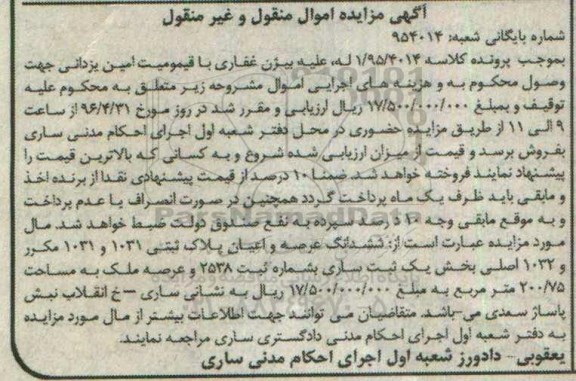 آگهی مزایده اموال منقول و غیر منقول
شماره بایگانی شعبه: ۹۵۴۰۱۴
بموجب پرونده کلاسه ۱/۹۵/۴۰۱۴ له، علیه بیژن غفاری با قیمومیت امین یزدانی جهت
وصول محکوم به و هزینه های اجرایی اموال مشروحه زیر متعلق به محکوم علیه
توقیف و بمبلغ ۱۷/۵۰۰/۰۰۰/۰۰۰ ریال ارزیابی و مقرر شد در روز مورخ ۹۶/۴/۳۱ از ساعت
۹ الی ۱۱ از طریق مزایده حضوری در محل دفتر شعبه اول اجرای احکام مدنی ساری
بفروش برسد و قیمت از میزان ارزیابی شده شروع و به کسانی که بالاترین قیمت را
پیشنهاد نمایند فروخته خواهد شد. ضمنا ۱۰ درصد از قیمت پیشنهادی نقدا از برنده اخذ
و مابقی باید ظرف یک ماه پرداخت گردد همچنین در صورت انصراف یا عدم پرداخت
و به موقع مابقی وجه ۱۰ درصد سپرده به نفع صندوق دولت ضبط خواهد شد. مال
مورد مزایده عبارت است از: ششدانگ عرصه و اعیان پلاک ثبتی ۱۰۳۱ و ۱۰۳۱ مکرر
و ۱۰۳۲ اصلی بخش یک ثبت ساری بشماره ثبت ۲۵۳۸ و عرصه ملک به مساحت
۲۰۰/۷۵ متر مربع به مبلغ ۱۷/۵۰۰/۰۰۰/۰۰۰ ریال به نشانی ساری –خ انقلاب نبش
پاساژ سعدی می-باشد. متقاضیان می توانند جهت اطلاعات بیشتر از مال مورد مزایده
به دفتر شعبه اول اجرای احکام مدنی دادگستری ساری مراجعه نمایند.
یعقوبی- دادورز شعبه اول اجرای احکام مدنی ساری
ParsNamadData